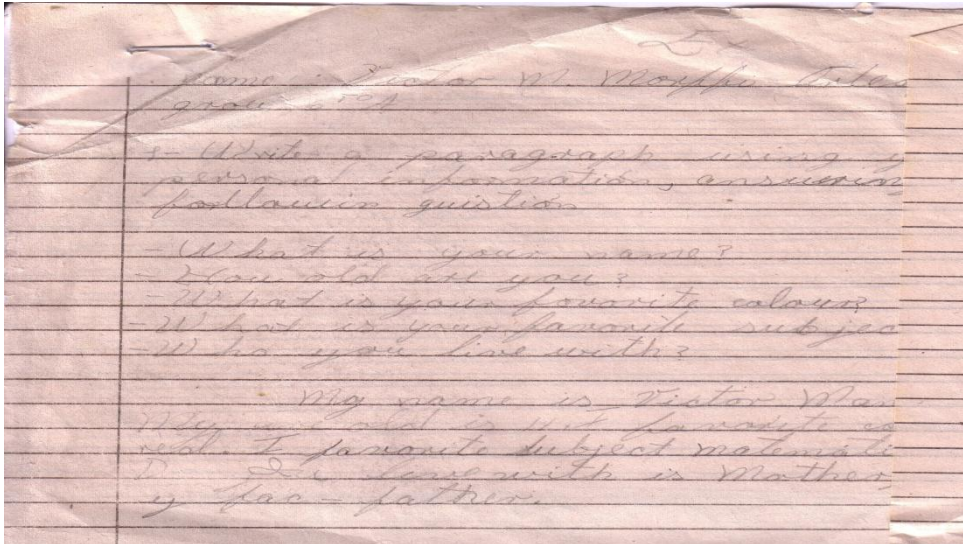 Name: Victor M. Morffo
group:
1- Write a paragraph using y
personal information, answering
followin guistion
- What is your name?
- How old are you?
- What is your favorite colour?
- What is your favorite subjec
- Who you live with?
My name is Victor Man
old is I favorite co
red. I favorite subject matemati
live with is Mother,
y fac- father.